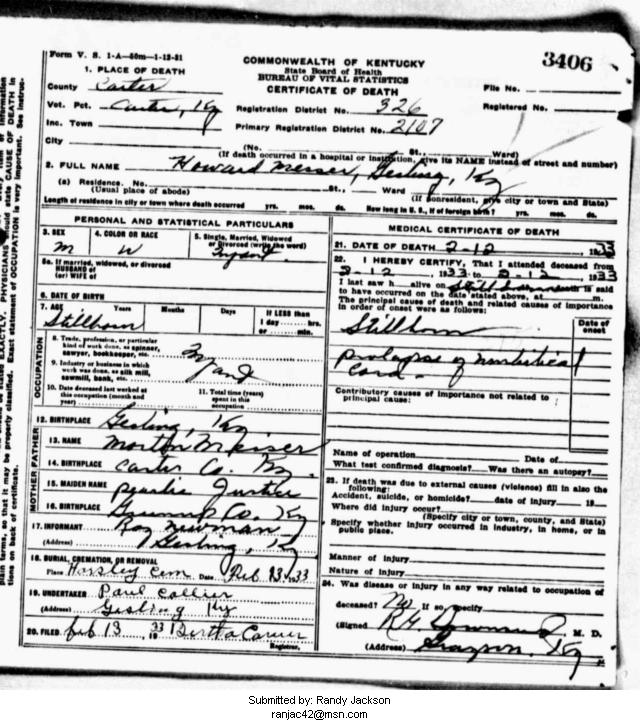 Form V. S. 1-A—50m—1-12-31
COMMONWEALTH OF KENTUCKY
State Board of Health
BUREAU OF VITAL STATISTICS
CERTIFICATE OF DEATH
3406
1. PLACE OF DEATH
County Carter
Vot. Pct. Carter, Ky
Inc. Town
City
File No.
Registered No.
Registration District No. 326
Primary Registration District No. 2107
(No. St., Ward)
(If death occurred in a hospital or institution, give its NAME instead of street and number)
2. FULL NAME Howard Messer, Gesling, Ky
(a) Residence. No. St., Ward
(Usual place of abode) (If nonresident, give city or town and State)
Length of residence in city or town where death occurred yrs. mos. ds. How long in U. S., if of foreign birth? yrs. mos. ds.
PERSONAL AND STATISTICAL PARTICULARS
3. SEX M
4. COLOR OR RACE W
5. Single, Married, Widowed or Divorced (write the word) Infant
5a. If married, widowed, or divorced
HUSBAND of
(or) WIFE of
6. DATE OF BIRTH
7. AGE Years Months Days If LESS than
1 day hrs.
or min.
Stillborn
OCCUPATION
8. Trade, profession, or particular
kind of work done, as spinner,
sawyer, bookkeeper, etc.
Infant
9. Industry or business in which
work was done, as silk mill,
sawmill, bank, etc.
10. Date deceased last worked at
this occupation (month and
year)
11. Total time (years)
spent in this
occupation
12. BIRTHPLACE Gesling, Ky
FATHER
13. NAME Morton Messer
14. BIRTHPLACE Carter Co. Ky.
MOTHER
15. MAIDEN NAME Pearlie Justice
16. BIRTHPLACE Greenup Co. Ky
17. INFORMANT Roy Newman
(Address) Gesling, Ky.
18. BURIAL, CREMATION, OR REMOVAL
Place Horsley Cem Date Feb 13 1933
19. UNDERTAKER Paul Collier
(Address) Gesling Ky
20. FILED Feb 13, 1933 Bertha Carver
Registrar.
MEDICAL CERTIFICATE OF DEATH
21. DATE OF DEATH 2-12, 1933
22. I HEREBY CERTIFY, That I attended deceased from
2-12, 1933 to 2-12, 1933
I last saw h alive on Still is said
to have occurred on the date stated above, at m.
The principal cause of death and related causes of importance
in order of onset were as follows:
Date of
onset
Stillborn
prolapse of umbilical
Cord -
Contributory causes of importance not related to
principal cause:
Name of operation Date of
What test confirmed diagnosis? Was there an autopsy?
23. If death was due to external causes (violence) fill in also the
following:
Accident, suicide, or homicide? date of injury 19
Where did injury occur?
(Specify city or town, county, and State)
Specify whether injury occurred in industry, in home, or in
public place.
Manner of injury
Nature of injury
24. Was disease or injury in any way related to occupation of
deceased? No If so, specify
(Signed M. D.
(Address) Grayson, Ky
Submitted by: Randy Jackson
ranjac42@msn.com